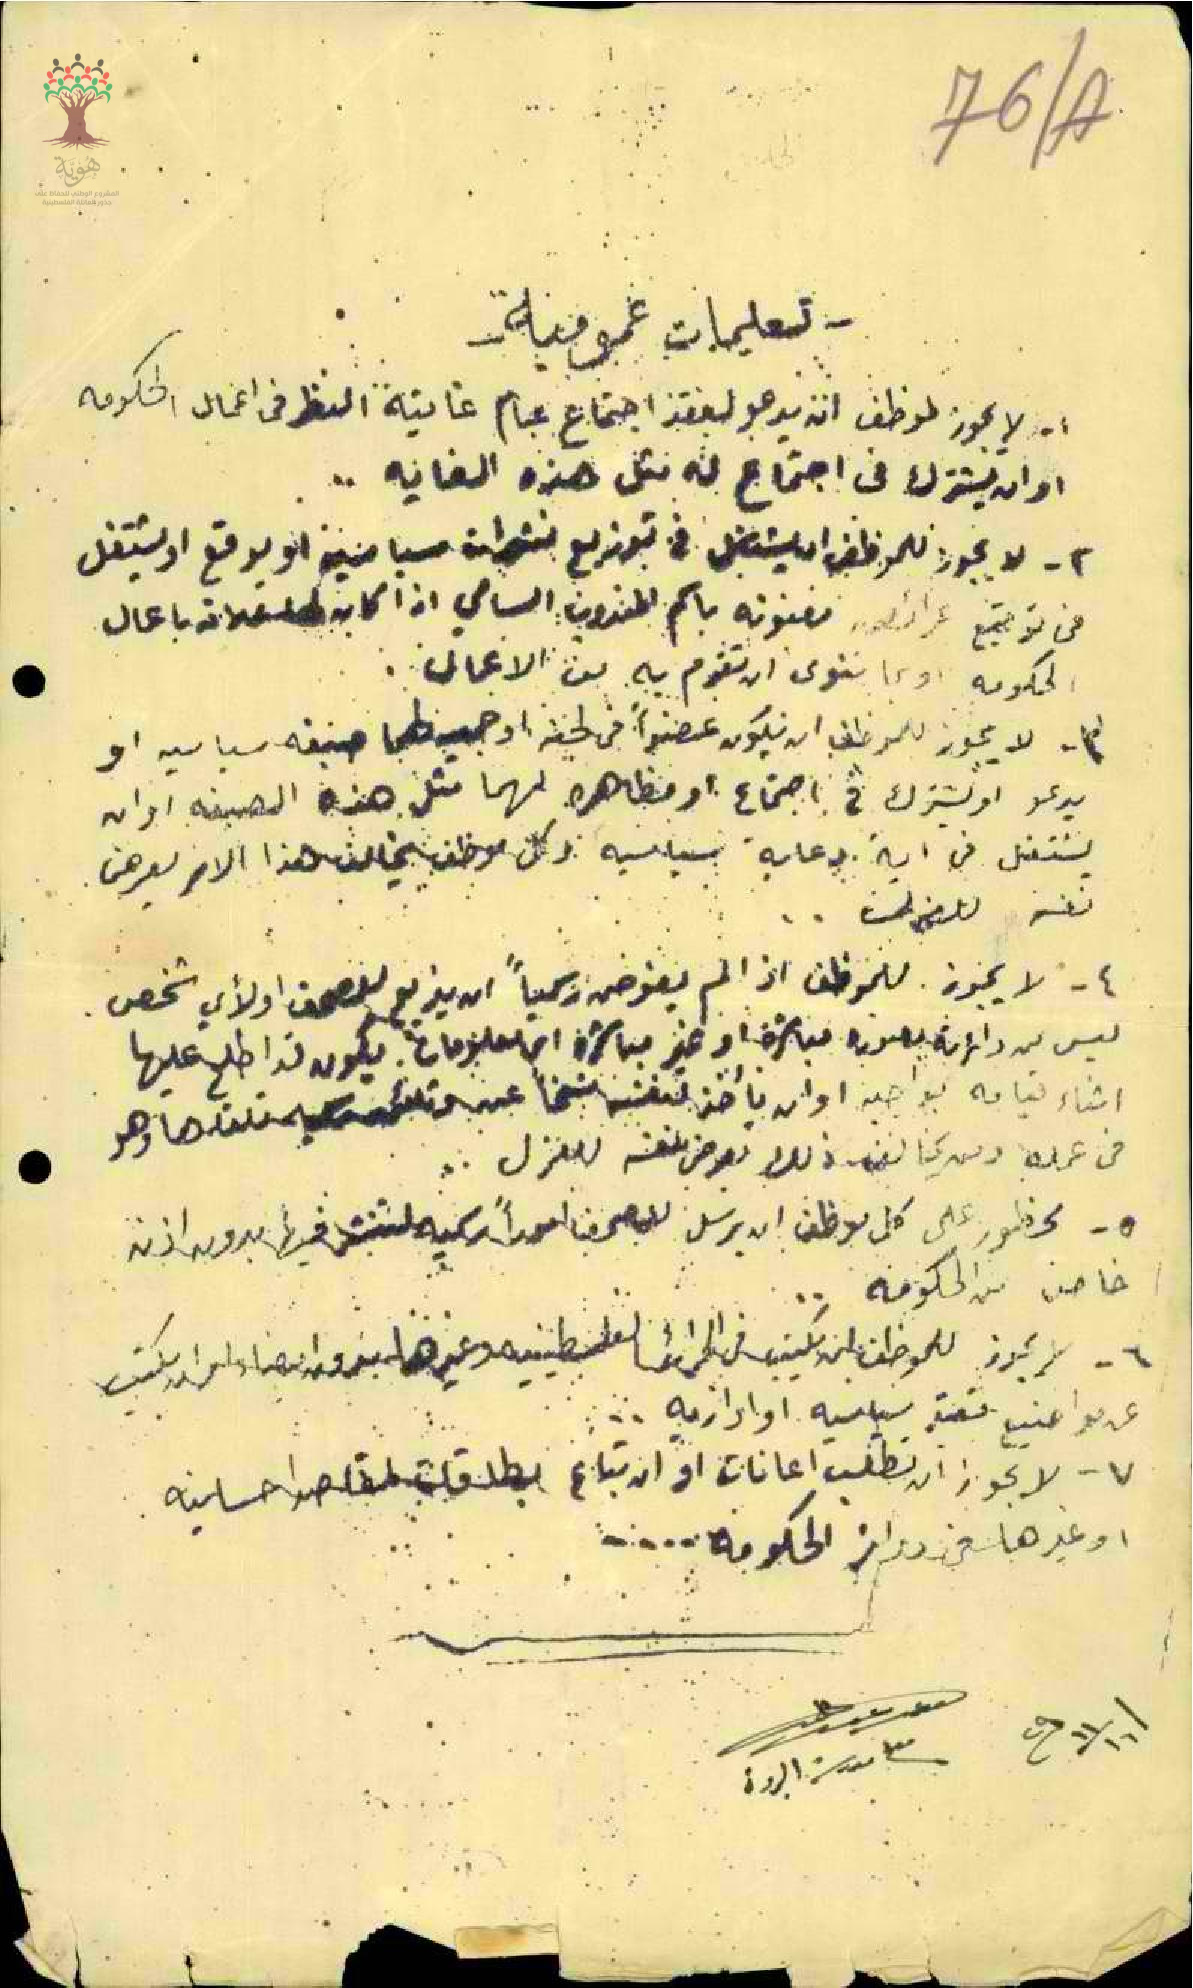 76/A
هوية
المشروع الوطني للحفاظ على
جذور العائلة الفلسطينية
- تعليمات عمومية -
١- لا يجوز لموظف ان يدعو لعقد اجتماع عام غايته النظر في اعمال الحكومه
او ان يشترك في اجتماع له مثل هذه الغايه ..
٢- لا يجوز للموظف ان يشتغل في توزيع نشرات سياسية او يوقع او يشتغل
في توقيع عرائض معنونه باسم المندوب السامي اذا كان لها علاقه باعمال
الحكومه او بما تنوى ان تقوم به من الاعمال .
٣- لا يجوز للموظف ان يكون عضواً في لجنة او جمعية لها صبغه سياسيه او
يدعو او يشترك في اجتماع او مظاهره لهما مثل هذه الصبغه او ان
يشتغل في اية دعاية سياسيه وكل موظف يخالف هذا الامر يعرض
نفسه للعزل ..
٤- لا يجوز للموظف اذا لم يفوض رسمياً ان يذيع للصحف او لأي شخص
ليس من دائرته بصوره مباشرة او غير مباشرة اي معلومات يكون قد اطلع عليها
اثناء قيامه بواجبه او ان يأخذ لنفسه نسخاً عن وثائق رسميه تلقاها وهو
في عمله ومن يخالف ذلك يعرض نفسه للعزل ..
٥- محظور على كل موظف ان يرسل للصحف اموراً رسميه لتنشر فيها بدون اذن
خاص من الحكومه ..
٦- لا يجوز للموظف ان يكتب في الجرائد الفلسطينيه وغيرها بدون امضاء او ان يكتب
عن مواضيع سياسيه او اداريه ..
٧- لا يجوز ان تطلب اعانات او ان تباع بطاقات لمقاصد احسانيه
او غيرها في دوائر الحكومه .....
مدرسة البروة